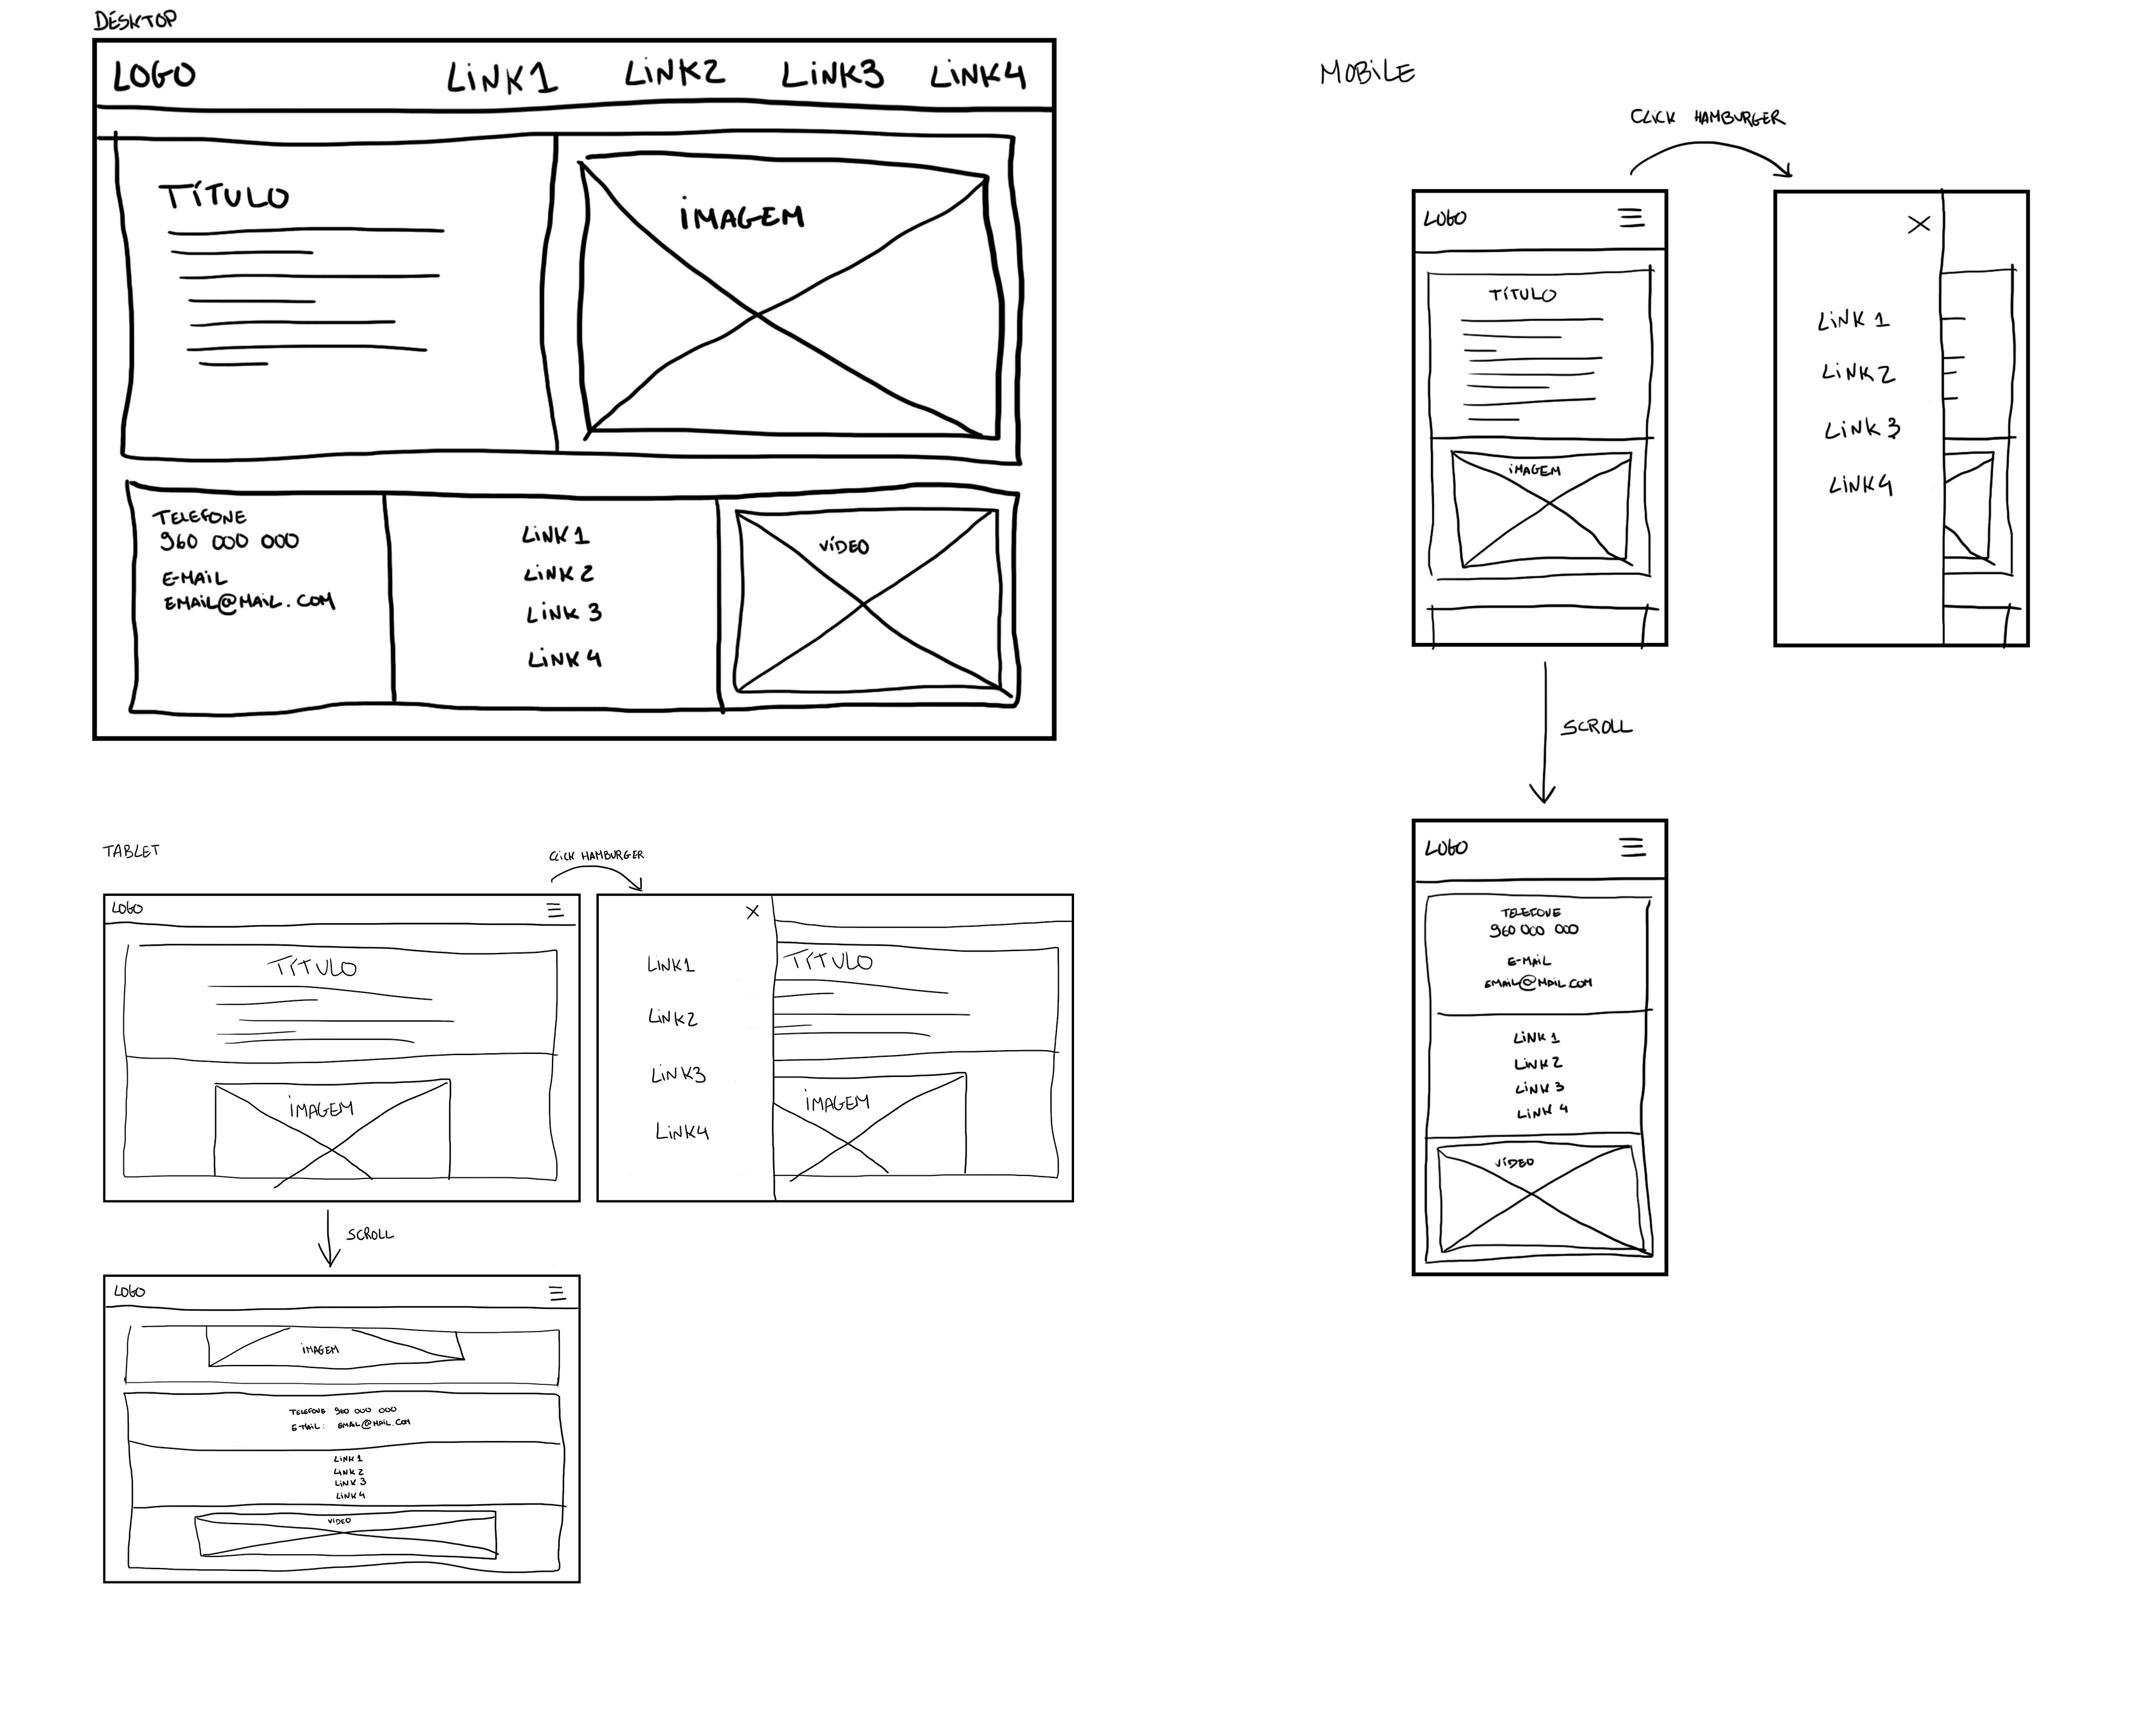 DESKTOP
LOGO LINK1 LINK2 LINK3 LINK4
TÍTULO
IMAGEM
TELEFONE
960 000 000
E-MAIL
EMAIL@MAIL.COM
LINK1
LINK2
LINK 3
LINK4
VÍDEO
TABLET
CLICK HAMBURGER
LOGO
TÍTULO
IMAGEM
LINK1
LINK2
LINK3
LINK4
TÍTULO
IMAGEM
SCROLL
LOGO
IMAGEM
TELEFONE: 960 000 000
E-MAIL: EMAIL@MAIL.COM
LINK1
LINK2
LINK3
LINK4
VÍDEO
MOBILE
CLICK HAMBURGER
LOGO
TÍTULO
IMAGEM
X
LINK 1
LINK2
LINK 3
LINK4
SCROLL
LOGO
TELEFONE
960 000 000
E-MAIL
EMAIL@MAIL.COM
LINK 1
LINK 2
LINK 3
LINK 4
VÍDEO